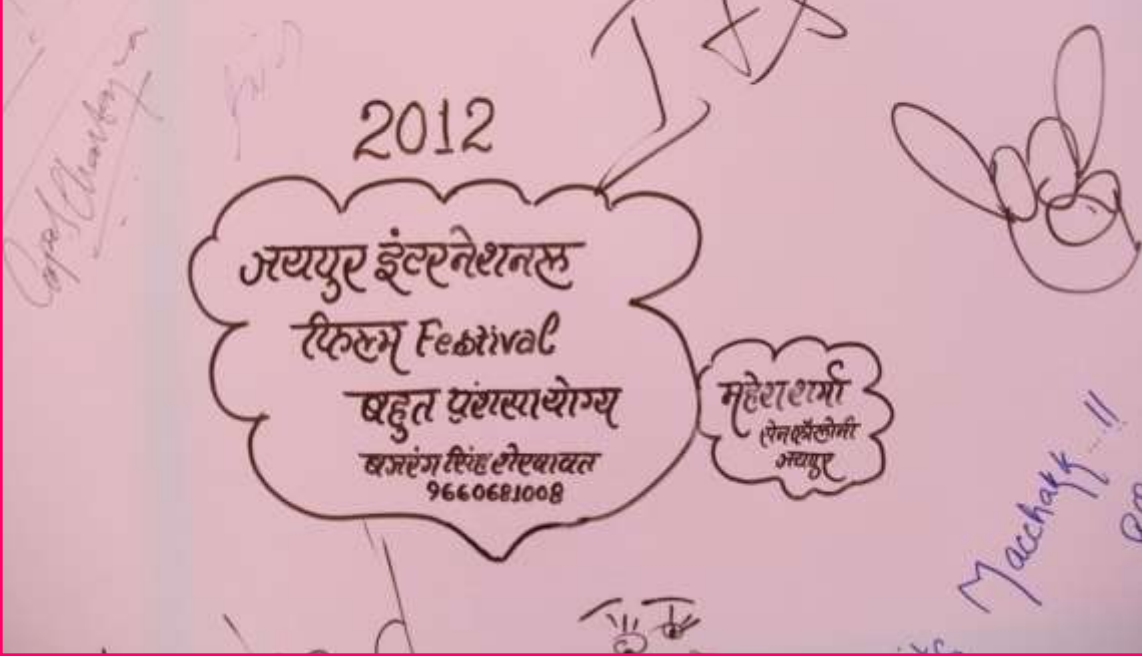 2012
जयपुर इंटरनेशनल
फिल्म Festival
बहुत प्रंशसा योग्य
बजरंग सिंह शेखावत
9660681008
महेश शर्मा
सेन कॉलोनी
जयपुर
Macchakk...!!